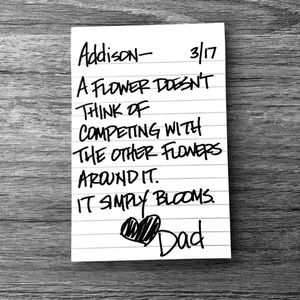 Addison— 3/17
A FLOWER DOESN'T
THINK OF
COMPETING WITH
THE OTHER FLOWERS
AROUND IT.
IT SIMPLY BLOOMS.
Dad